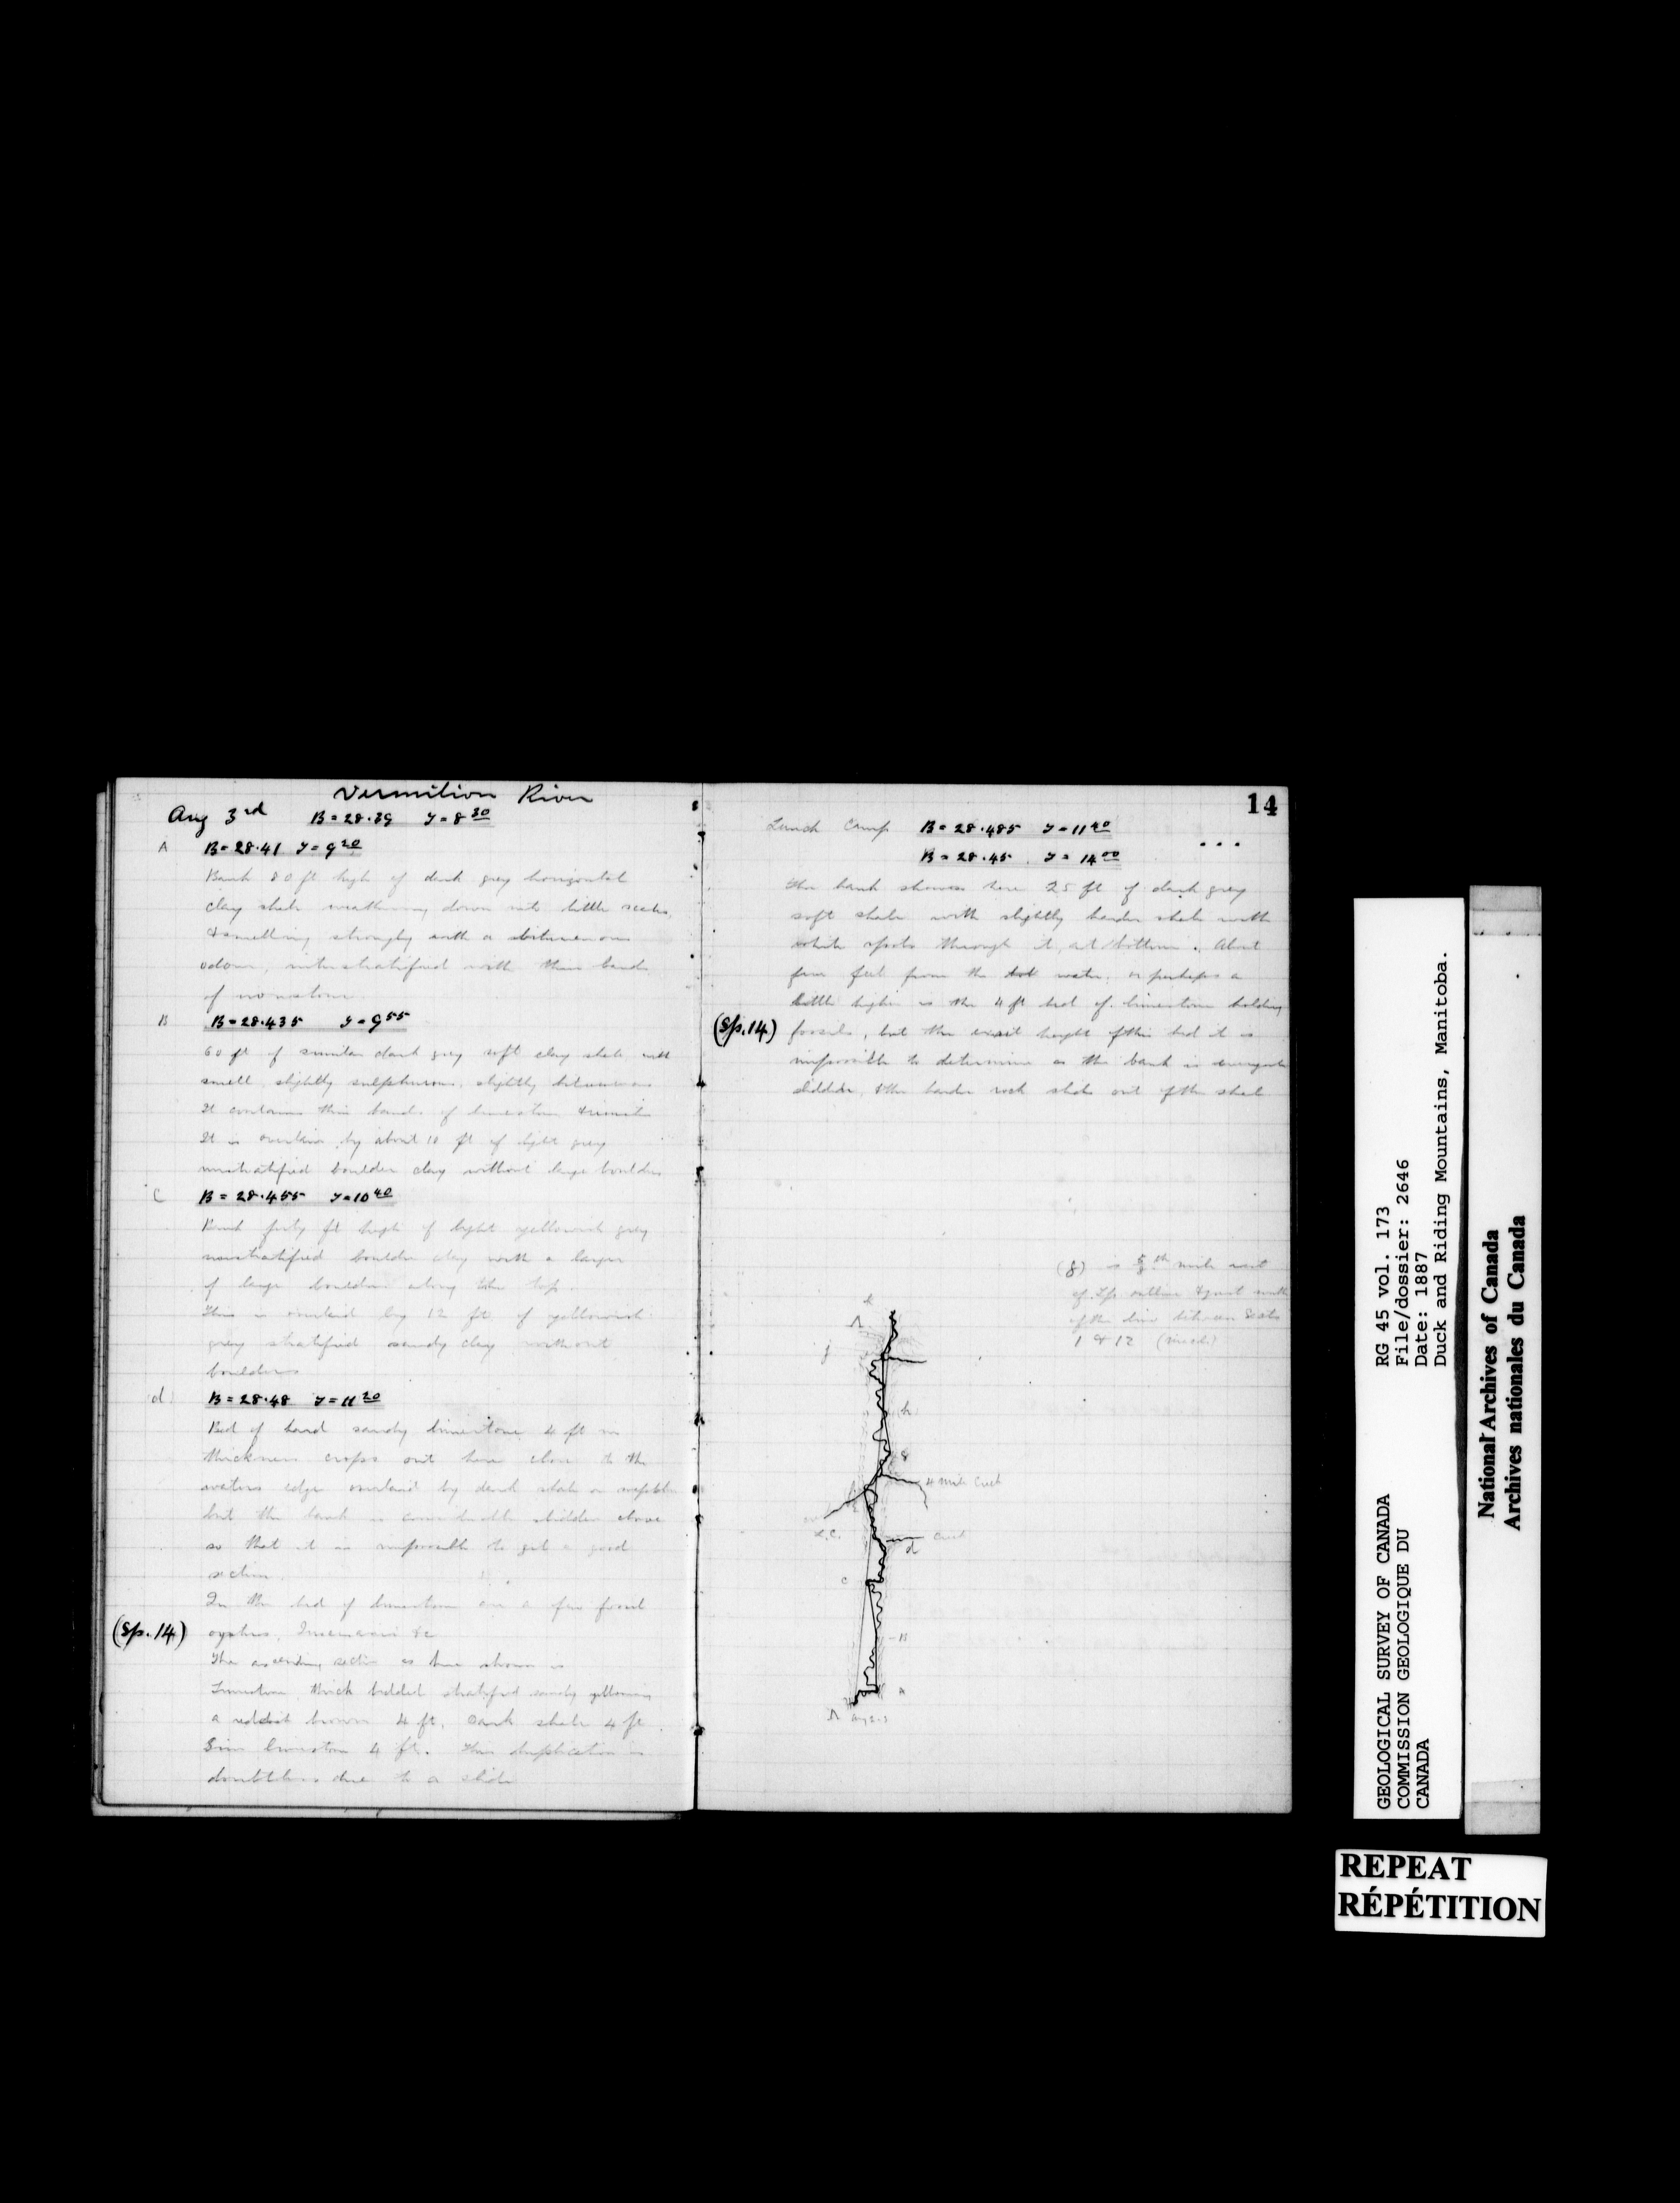 Vermilion River
Aug 3rd B = 28.39 T = 8 30
A B = 28.41 T = 9 20
Bank 80 ft high of dark grey horizontal
clay shale weathering down into little scales,
& smelling strongly with a bituminous
odour, interstratified with thin bands
of ironstone
B B = 28.435 T = 9 55
60 ft of similar dark grey soft clay shale with
smell slightly sulphurous, slightly bituminous
It contains thin bands of limestone
It is overlain by about 10 ft of light grey
unstratified boulder clay without large boulders
C B = 28.455 T = 10 40
Bank forty ft high of light yellowish grey
unstratified boulder clay with a layer
of large boulders along the top
This is overlaid by 12 ft of yellowish
grey stratified sandy clay without
boulders
d B = 28.48 T = 11 20
Bed of hard sandy limestone 4 ft in
thickness crops out here close to the
waters edge overlaid by dark shale
but the bank is considerably slidden above
so that it is impossible to get a good
section
In the bed of limestone are a few fossil
(Sp. 14) oysters, Inoceramus &c
The ascending section as here shown is
Limestone thick bedded stratified sandy
a reddish brown 4 ft. Dark shale 4 ft.
limestone 4 ft. This duplication is
doubtless due to a slide
14
Lunch Camp B = 28.485 T = 11 40
B = 28.45 T = 14 00
The bank shows here 25 ft of dark grey
soft shale with slightly harder shale with
white spots through it, at bottom. About
five feet from the water, or perhaps a
little higher is the 4 ft bed of limestone holding
(Sp. 14) fossils, but the exact height of this bed it is
impossible to determine as the bank is
slidden, & the harder rock slides out of the shale
(g) is 5/8 th mile west
of Tp. outline & just south
of the line between Sects
1 & 12
k
j
h
g
4 Mile Creek
L.C.
Creek
d
C
B
A
Aug 2-3
GEOLOGICAL SURVEY OF CANADA
COMMISSION GEOLOGIQUE DU
CANADA
RG 45 vol. 173
File/dossier: 2646
Date: 1887
Duck and Riding Mountains, Manitoba.
National Archives of Canada
Archives nationales du Canada
REPEAT
RÉPÉTITION